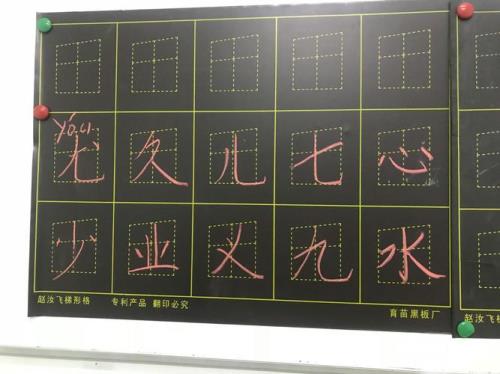 yóu
尤 久 儿 七 心
少 业 义 九 水
赵汝飞梯形格 专利产品 翻印必究 育苗黑板厂 赵汝飞